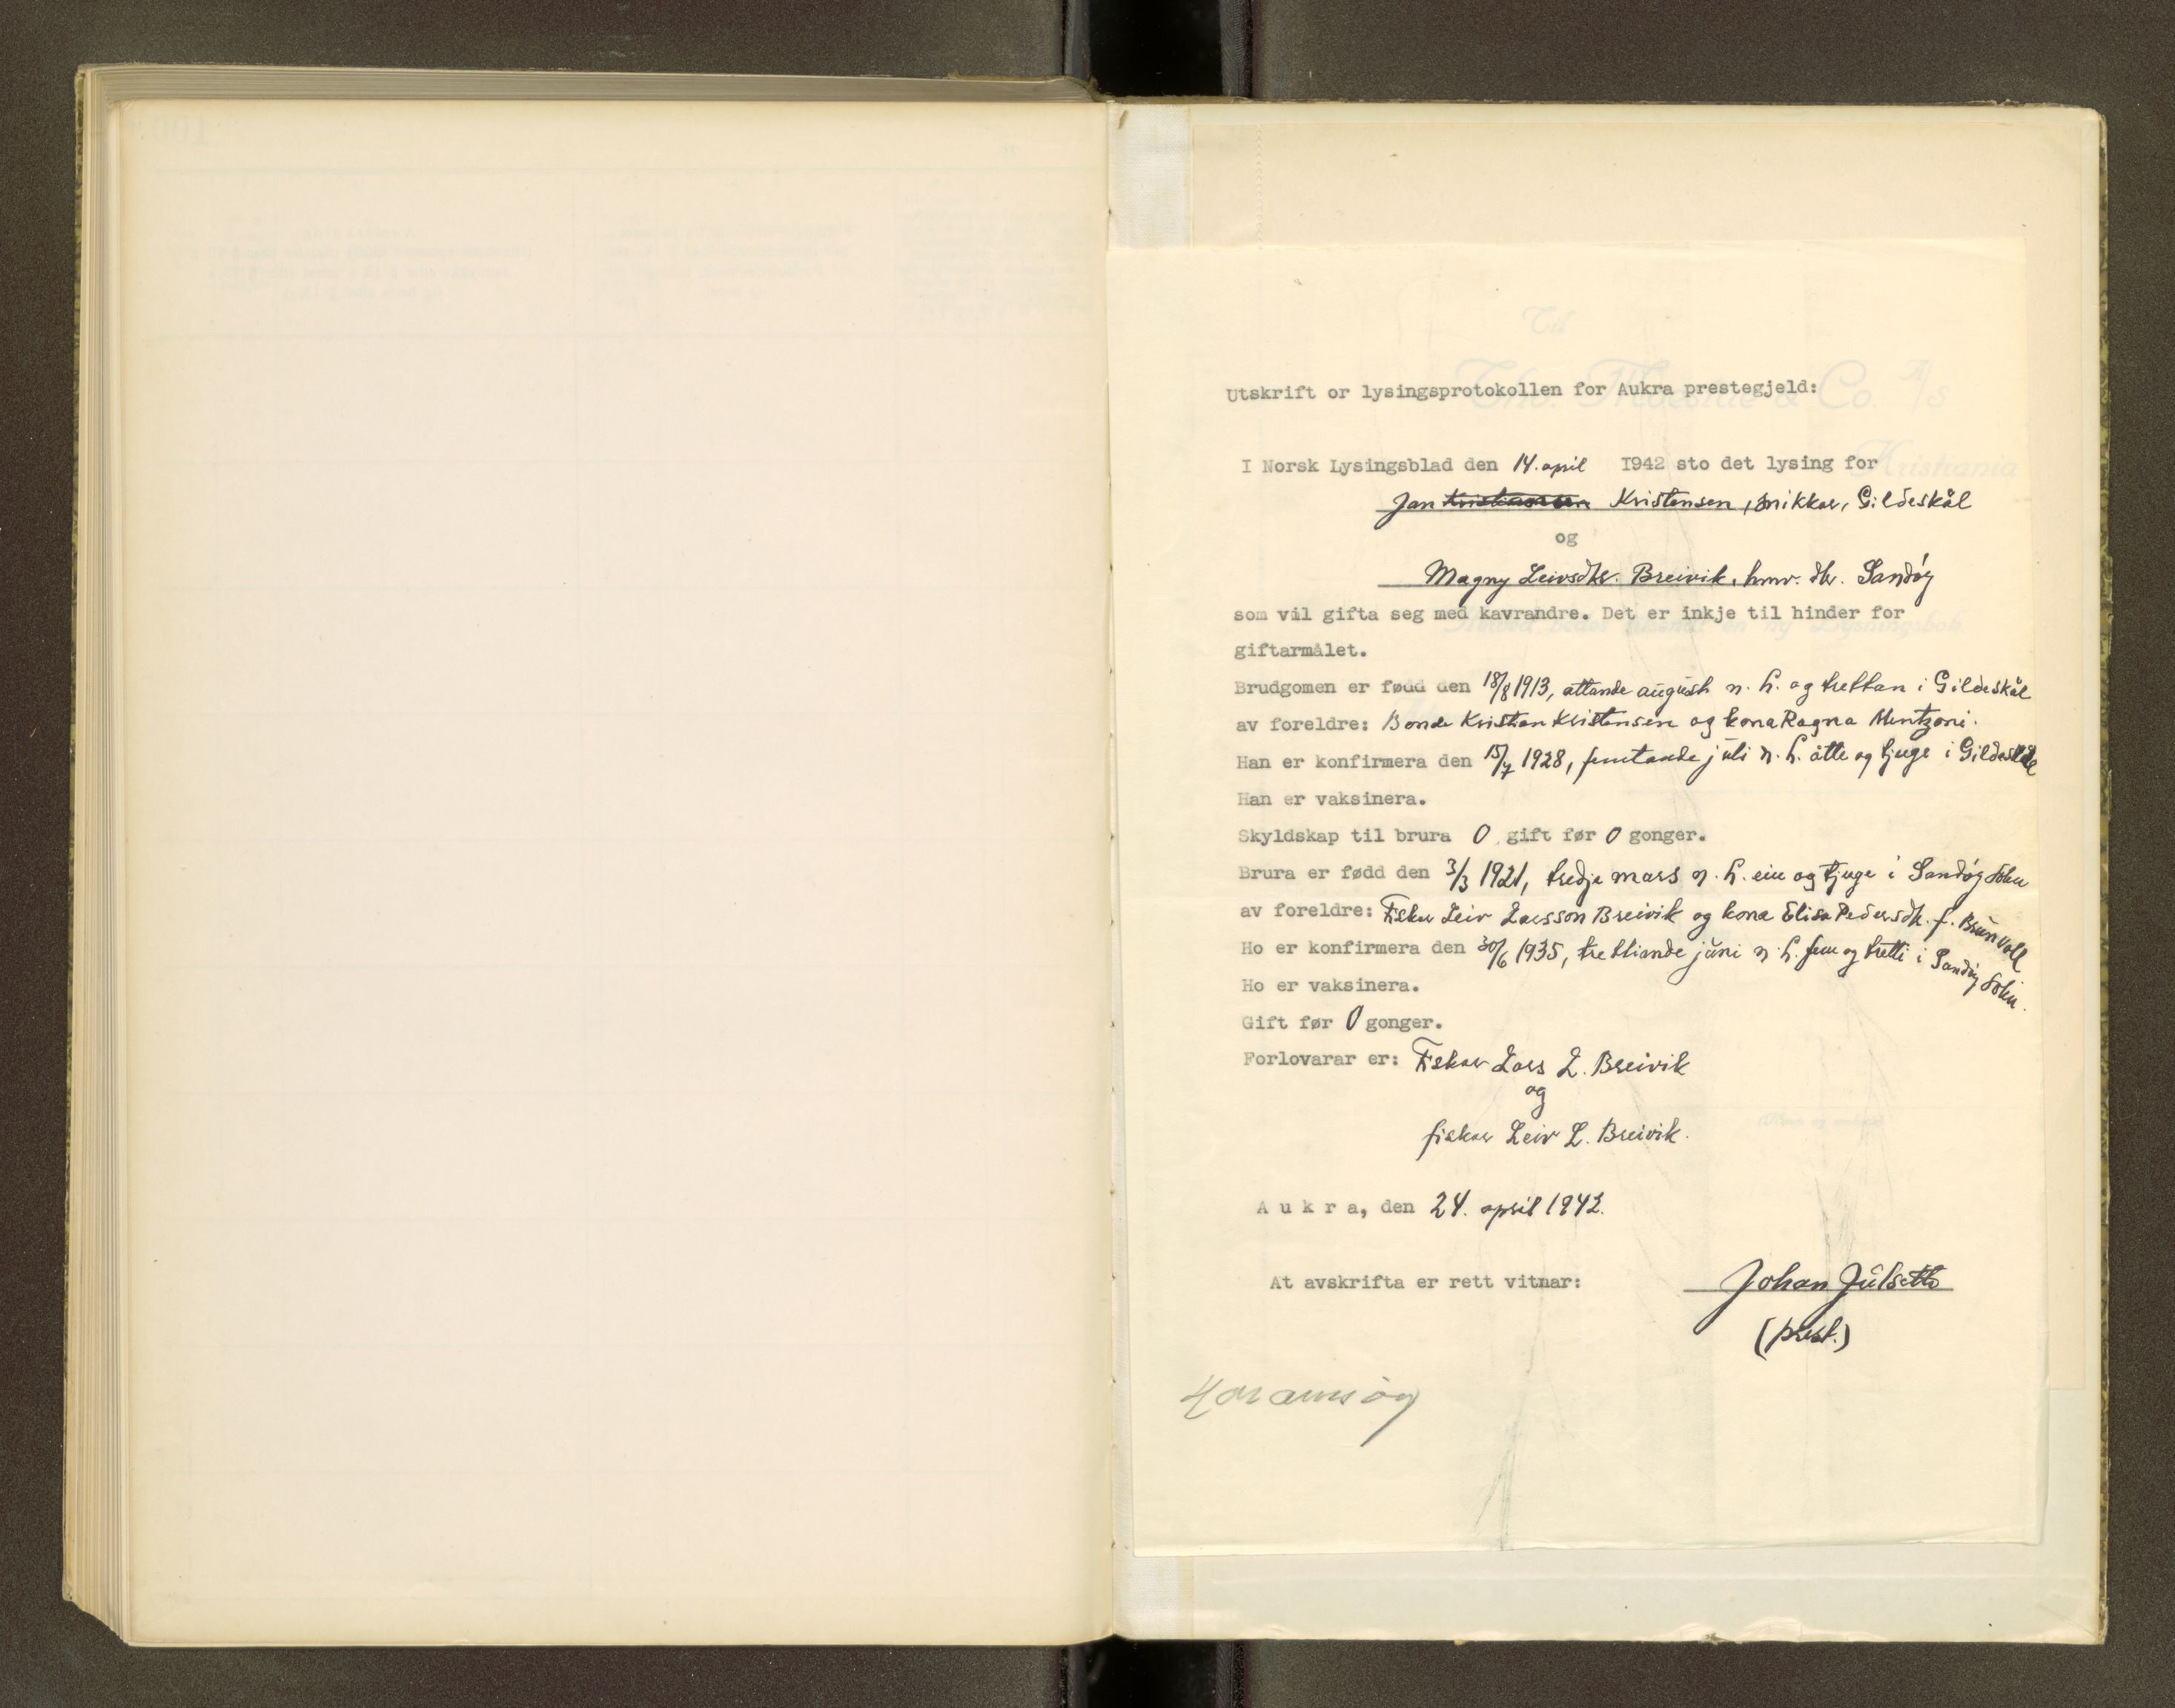 Utskrift or lysingsprotokollen for Aukra prestegjeld:
I Norsk Lysingsblad den 14. april 1942 sto det lysing for
Jan Kristensen, snikkar, Gildeskål
og
Magny Leivsdtr. Breivik, hmv. dtr. Sandøy
som vil gifta seg med kavrandre. Det er inkje til hinder for
giftarmålet.
Brudgomen er fødd den 18/8 1913, attande august n. h. og trettan i Gildeskål
av foreldre: Bonde Kristian Kristensen og kona Ragna Mentzoni.
Han er konfirmera den 15/7 1928, femtande juli n. h. åtte og tjuge i Gildeskål
Han er vaksinera.
Skyldskap til brura 0 gift før 0 gonger.
Brura er fødd den 3/3 1921, tredje mars n. h. ein og tjuge i Sandøy sokn
av foreldre: Fiskar Leiv Larsson Breivik og kona Elisa Pedersdtr. f. Brunvoll
Ho er konfirmera den 30/6 1935, trettiande juni n. h. fem og tretti i Sandøy sokn.
Ho er vaksinera.
Gift før 0 gonger.
Forlovarar er: Fiskar Lars L. Breivik
og
fiskar Leiv L. Breivik.
A u k r a, den 24. april 1942.
At avskrifta er rett vitnar: Johan Julseth
(prest.)
Haramsøy